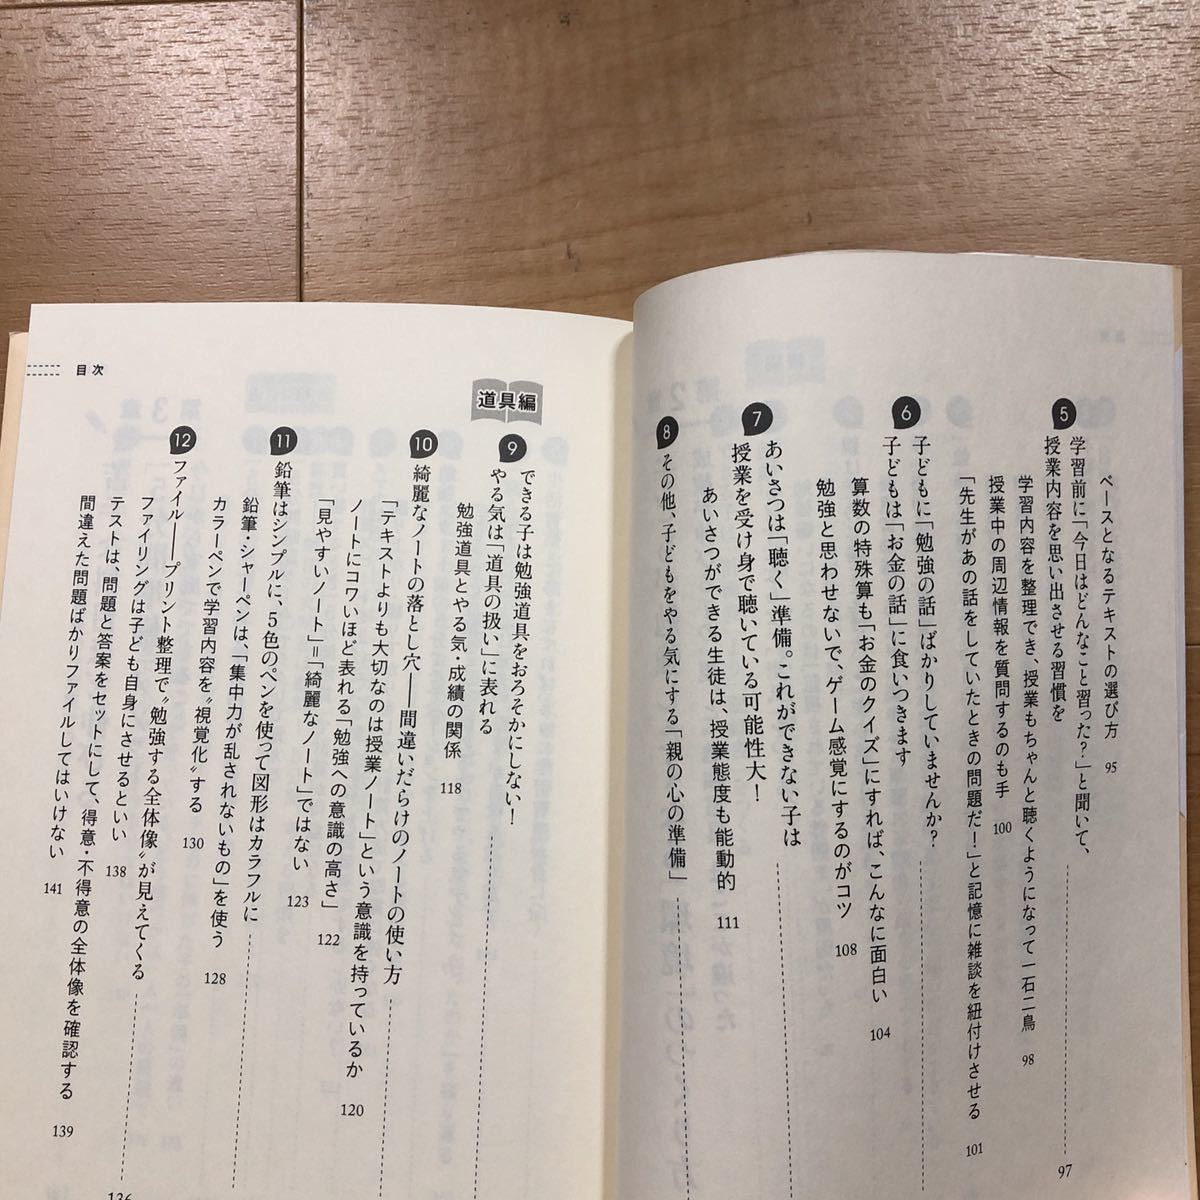 ベースとなるテキストの選び方 95
5 学習前に「今日はどんなこと習った?」と聞いて、
授業内容を思い出させる習慣を 97
学習内容を整理でき、授業もちゃんと聴くようになって一石二鳥 98
授業中の周辺情報を質問するのも手 100
「先生があの話をしていたときの問題だ!」と記憶に雑談を紐付けさせる 101
6 子どもに「勉強の話」ばかりしていませんか?
子どもは「お金の話」に食いつきます
算数の特殊算も「お金のクイズ」にすれば、こんなに面白い 104
勉強と思わせないで、ゲーム感覚にするのがコツ 108
7 あいさつは「聴く」準備。これができない子は
授業を受け身で聴いている可能性大!
あいさつができる生徒は、授業態度も能動的 111
8 その他、子どもをやる気にする「親の心の準備」
道具編
9 できる子は勉強道具をおろそかにしない!
やる気は「道具の扱い」に表れる
勉強道具とやる気・成績の関係 118
10 綺麗なノートの落とし穴――間違いだらけのノートの使い方
「テキストよりも大切なのは授業ノート」という意識を持っているか 120
ノートにコワいほど表れる「勉強への意識の高さ」 122
「見やすいノート」=「綺麗なノート」ではない 123
11 鉛筆はシンプルに、5色のペンを使って図形はカラフルに
鉛筆・シャーペンは、「集中力が乱されないもの」を使う 128
カラーペンで学習内容を〝視覚化〟する 130
12 ファイル――プリント整理で〝勉強する全体像〟が見えてくる 136
ファイリングは子ども自身にさせるといい 138
テストは、問題と答案をセットにして、得意・不得意の全体像を確認する 139
間違えた問題ばかりファイルしてはいけない 141
目次